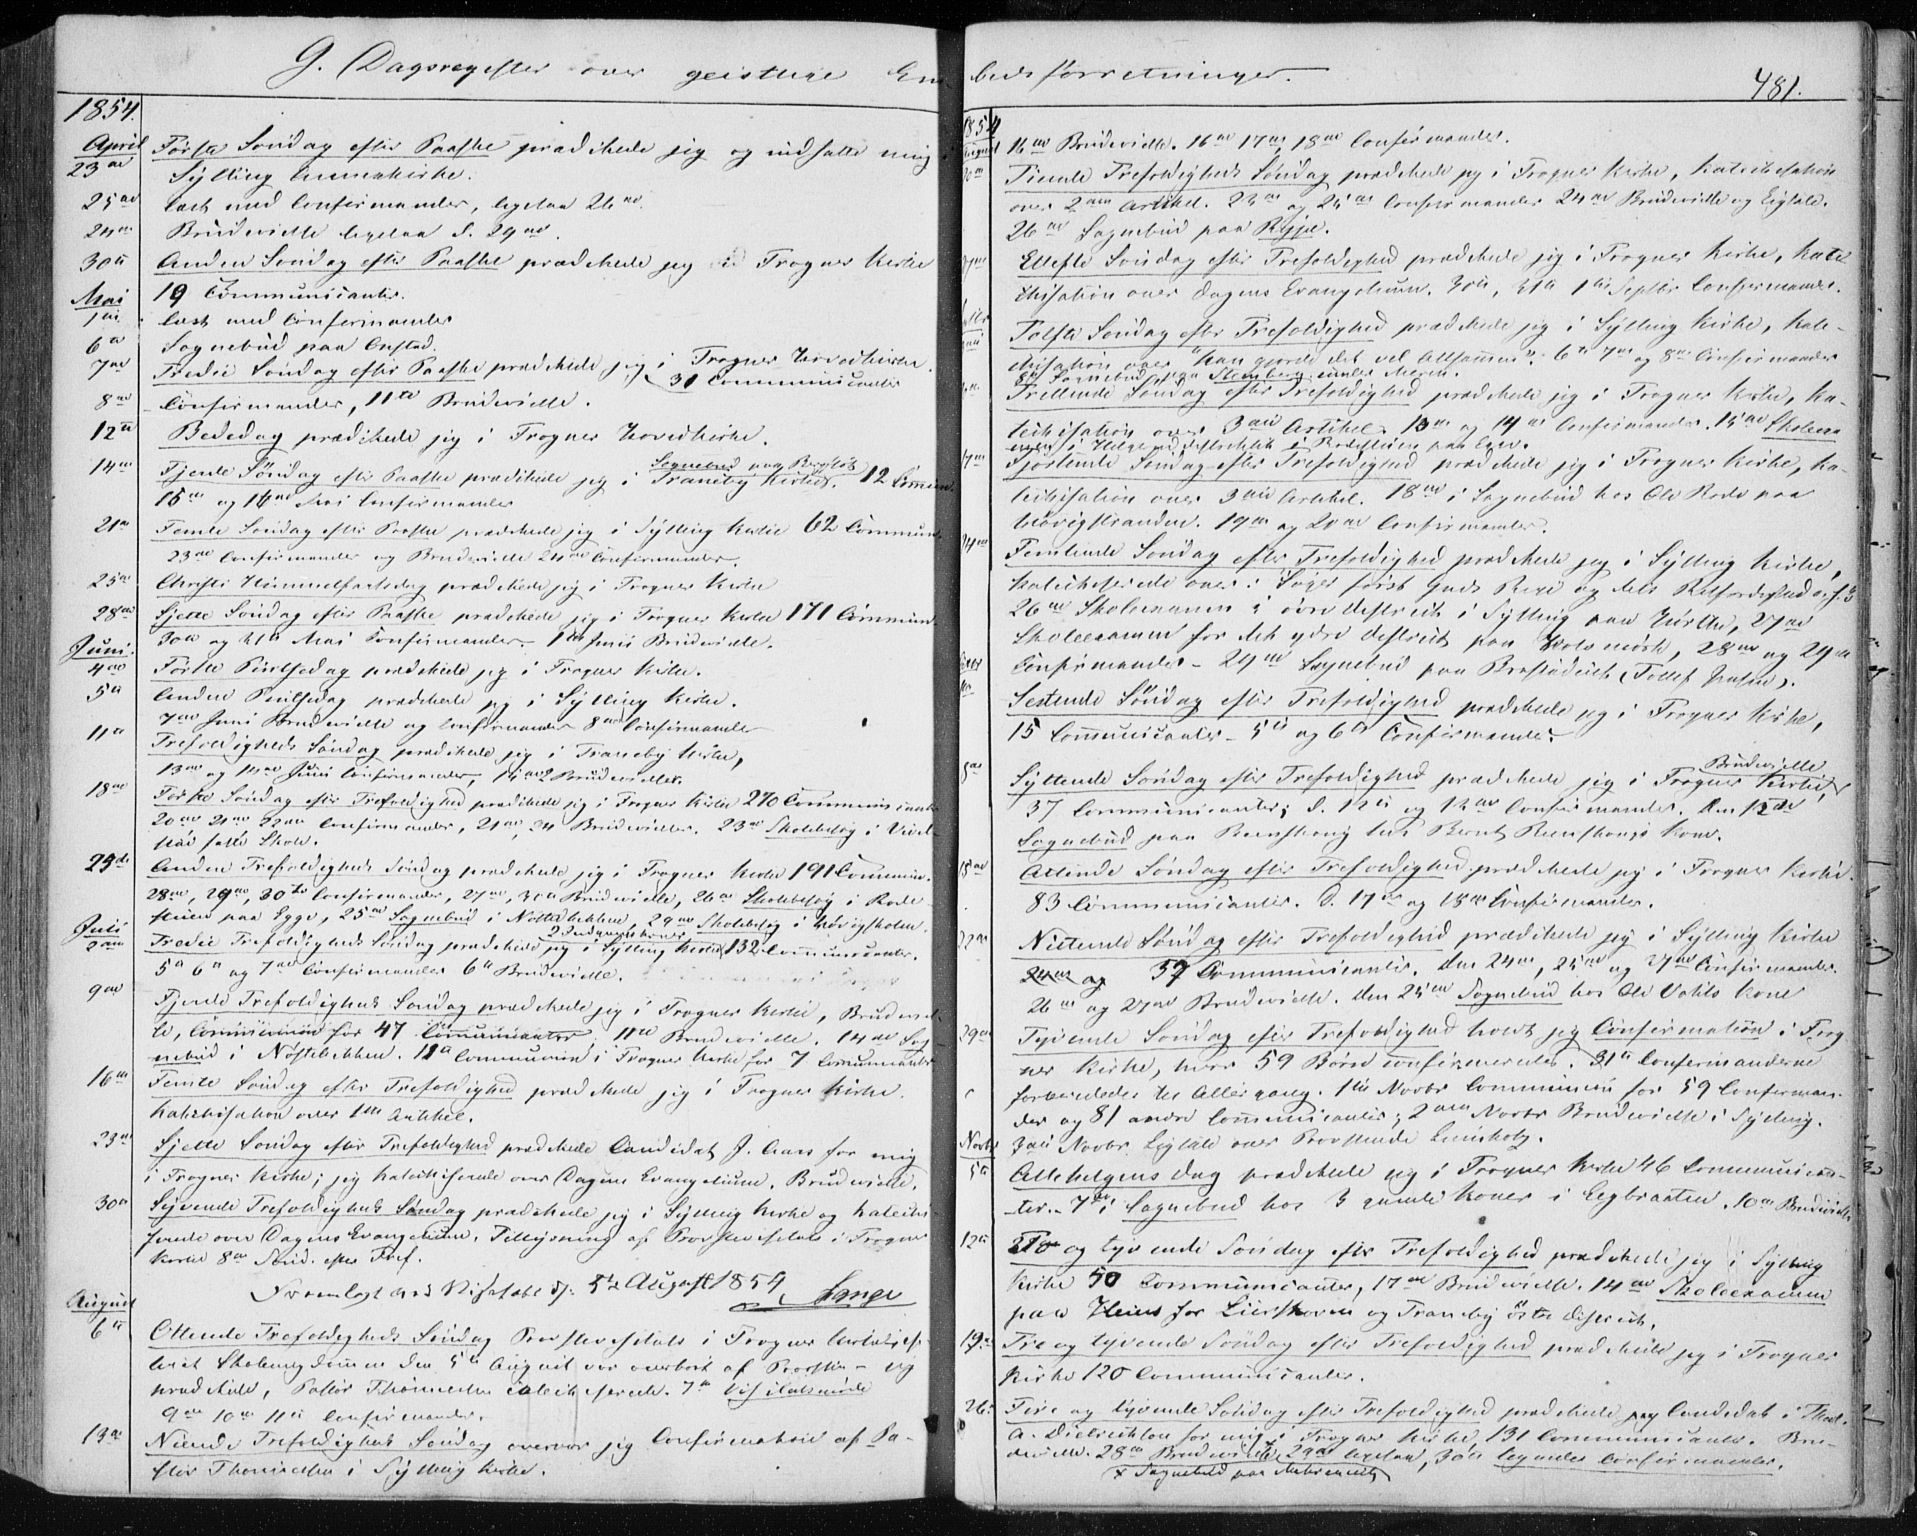 G. Dagsregister over geistlige Embedsforretninger.
481.
1854.
April
23de Første Søndag efter Paaske prædikede jeg og indsatte mig i
Sylling Annexkirke.
25de læst med Confirmander, ligesaa 26de.
24de Brudevielse ligesaa d. 29de.
30te Anden Søndag efter Paaske prædikede jeg ved Frogner Kirke
19 Communicanter.
Mai
1ste læst med Confirmander
6te Sognebud paa Onstad.
7de Tredie Søndag efter Paaske prædikede jeg i Frogner Hovedkirke.
31 Communicanter
8de Confirmander, 11te Brudevielse.
12te Bededag prædikede jeg i Frogner Hovedkirke.
Sognebud paa
14de Fjerde Søndag efter Paaske prædikede jeg i Tranby Kirke. 12 Commun.
15de og 16de Mai Confirmander
21de Femte Søndag efter Paaske prædikede jeg i Sylling Kirke 62 Commun.
23de Confirmander og Brudevielse 24de Confirmander.
25de Christi Himmelfartsdag prædikede jeg i Frogner Kirke
28de Sjette Søndag efter Paaske prædikede jeg i Frogner Kirke 171 Commun.
30te og 31te Mai Confirmander. 1ste Juni Brudevielse.
Juni.
4de Første Pintsedag prædikede jeg i Frogner Kirke.
5te Anden Pintsedag prædikede jeg i Sylling Kirke.
7de Juni Brudevielse og Confirmander 8de Confirmander
11te Trefoldigheds Søndag prædikede jeg i Tranby Kirke,
13de og 14de Juni Confirmander, 2 Brudevielser.
18de Første Søndag efter Trefoldighed prædikede jeg i Frogner Kirke 270 Communicanter
20de 21de 22de Confirmander, 21de, 24 Brudevielser. 23de Skolebesøg i
faste Skole.
25de Anden Trefoldigheds Søndag prædikede jeg i Frogner Kirke 191 Commun.
28de, 29de, 30te Confirmander, 27de, 30te Brudevielse, 26de Skolebesøg i Rode-
paa Egge, 25de Sognebud i Nøstebekken, 29de Skolebesøg i Høvigskolen.
Juli
2den Tredie Trefoldigheds Søndag prædikede jeg i Sylling Kirke, 132 Communicanter.
5te 6te og 7de Confirmander 6te Brudevielse.
9de Fjerde Trefoldigheds Søndag prædikede jeg i Frogner Kirke, Brudevielse-
se, Communion for 47 Communicanter, 11te Brudevielse. 14de Sog-
nebud i Nøstebekken. Communion i Frogner Kirke for 7 Communicanter
16de Femte Søndag efter Trefoldighed prædikede jeg i Frogner Kirke.
Katekisation over 1ste Artikel.
23de Sjette Søndag efter Trefoldighed prædikede Candidat J. Aars for mig
i Frogner Kirke; jeg katekiserede over Dagens Evangelium. Brudevielse.
30te Syvende Trefoldigheds Søndag prædikede jeg i Sylling Kirke og kateki-
serede over Dagens Evangelium. Tillysning af Provstevisitats i Frogner
Kirke 8de Sønd. efter Tref.
Fremlagt ved Visitats d. 5te August 1854, Lange
August
6te Ottende Trefoldigheds Søndag Provstevisitats i Frogner
Skoleungdommen den 5te August var overhørt af Provsten og
prædikede, Pastor Thomesen katekiserede. 7de Visitatsmøde
9de 10de 11te Confirmander.
13de Niende Trefoldigheds Søndag overvar jeg Confirmation af Pa-
stor Thomesen i Sylling Kirke.
1854
August 16de Brudevielse. 16de 17de 18de Confirmander.
20de Tiende Trefoldigheds Søndag prædikede jeg i Frogner Kirke, Katekisation
over 2den Artikel. 23de og 25de Confirmander 24de Brudevielse og Ligtale.
26de Sognebud paa
27de Ellefte Søndag efter Trefoldighed prædikede jeg i Frogner Kirke, Kate-
kisation over Dagens Evangelium. 30te, 31te 1ste Septbr Confirmander.
Tolfte Søndag efter Trefoldighed prædikede jeg i Sylling Kirke, Kate-
kisation over "Han gjorde det vel Altsammen". 6te 7de og 8de Confirmander
Sognebud paa Stenberg under
Trettende Søndag efter Trefoldighed prædikede jeg i Frogner Kirke, Ka-
tekisation over 3die Artikel. 13de og 14de Confirmander. 15de Skoleexa-
men i
17de Fjortende Søndag efter Trefoldighed prædikede jeg i Frogner Kirke, Ka-
tekisation over 3die Artikel. 18de i Sognebud hos Ole Rode paa
Høvigstranden. 19de og 20de Confirmander.
24de Femtende Søndag efter Trefoldighed prædikede jeg i Sylling Kirke,
katekiserede over: Søger først Guds Rige og dets Retfærdighed o.s.v.
26de Skoleexamen i øvre District i Sylling paa 27de
Skoleexamen for det ydre District paa 28de og 29de
Confirmander – 29de Sognebud paa (Tollef Jensen).
Sextende Søndag efter Trefoldighed prædikede jeg i Frogner Kirke,
15 Communicanter – 5te og 6te Confirmander.
8de Syttende Søndag efter Trefoldighed prædikede jeg i Frogner Kirke, Brudevielse
37 Communicanter; d. 12te og 13de Confirmander. den 12de
Sognebud paa Reenskoug hos Bernt Reenskougs Kone.
15de Attende Søndag efter Trefoldighed prædikede jeg i Frogner Kirke.
83 Communicanter. D. 17de og 18de Confirmander.
22de Nittende Søndag efter Trefoldighed prædikede jeg i Sylling Kirke
24de og 57 Communicanter. den 24de, 25de og 27de Confirmander.
26de og 27de Brudevielse. den 25de Sognebud hos Ole Kone
29de Tyvende Søndag efter Trefoldighed holdt jeg Confirmation i Frog-
ner Kirke, hvor 59 Børn confirmeredes. 31te Confirmanderne
forberededes til Altergang. 1ste Novbr Communion for 59 Confirman-
der og 81 andre Communicanter; 2den Novbr Brudevielse i Sylling.
3die Novbr Ligtale over Provstinde
Novbr
5te Allehelgens dag prædikede jeg i Frogner Kirke 46 Communican-
ter. 7de i Sognebud hos 3 gamle Koner i Eegbraaten. 10de Brudevielse
12te To og tyvende Søndag efter Trefoldighed prædikede jeg i Sylling
Kirke 50 Communicanter, 17de Brudevielse. 14de Skoleexamen
paa for Lierskoven og Tranby østre District.
19de Tre og tyvende Søndag efter Trefoldighed prædikede jeg i Frogner
Kirke 120 Communicanter.
26de Fire og tyvende Søndag efter Trefoldighed prædikede jeg Candidat i Theol.
A. for mig i Frogner Kirke 131 Communicanter. Bru-
devielse. 28de Brudevielse, 29de ligesaa, 30te begyndte Confirmander.
x Sognebud paa